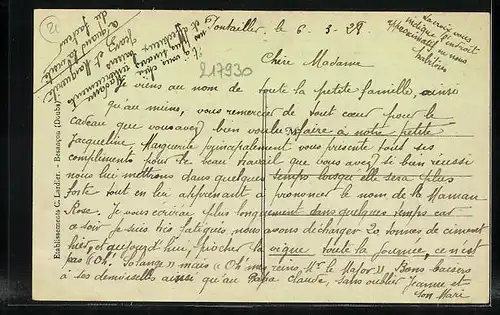 Pontailler, le 6. 3. 28
La croix vous
indique l'endroit
approximatif où nous
habitons
Chère Madame
Je viens au nom de toute la petite famille, ainsi
qu'au mien, vous remercier de tout cœur pour le
cadeau que vous avez bien voulu faire à notre petite
Jacqueline. Marguerite principalement vous présente tous ses
compliments pour le beau travail que vous avez si bien réussi
nous lui mettrons dans quelques temps lorsqu'elle sera plus
forte tout en lui apprenant à prononcer le nom de la Maman
Rose. Je vous écrirai plus longuement dans quelques temps car
ce soir je suis très fatigué, nous avons déchargé 20 tonnes de ciment
hier, et aujourd'hui, piocher la vigne toute la journée, ce n'est
pas "Oh! Solange" mais "Oh! mes reins, Mr le Major". Bons baisers
à ses demoiselles ainsi qu'au Papa Claude, sans oublier Jeanne et
son Mari
217930
Etablissements C. Lardier. - Besançon (Doubs)